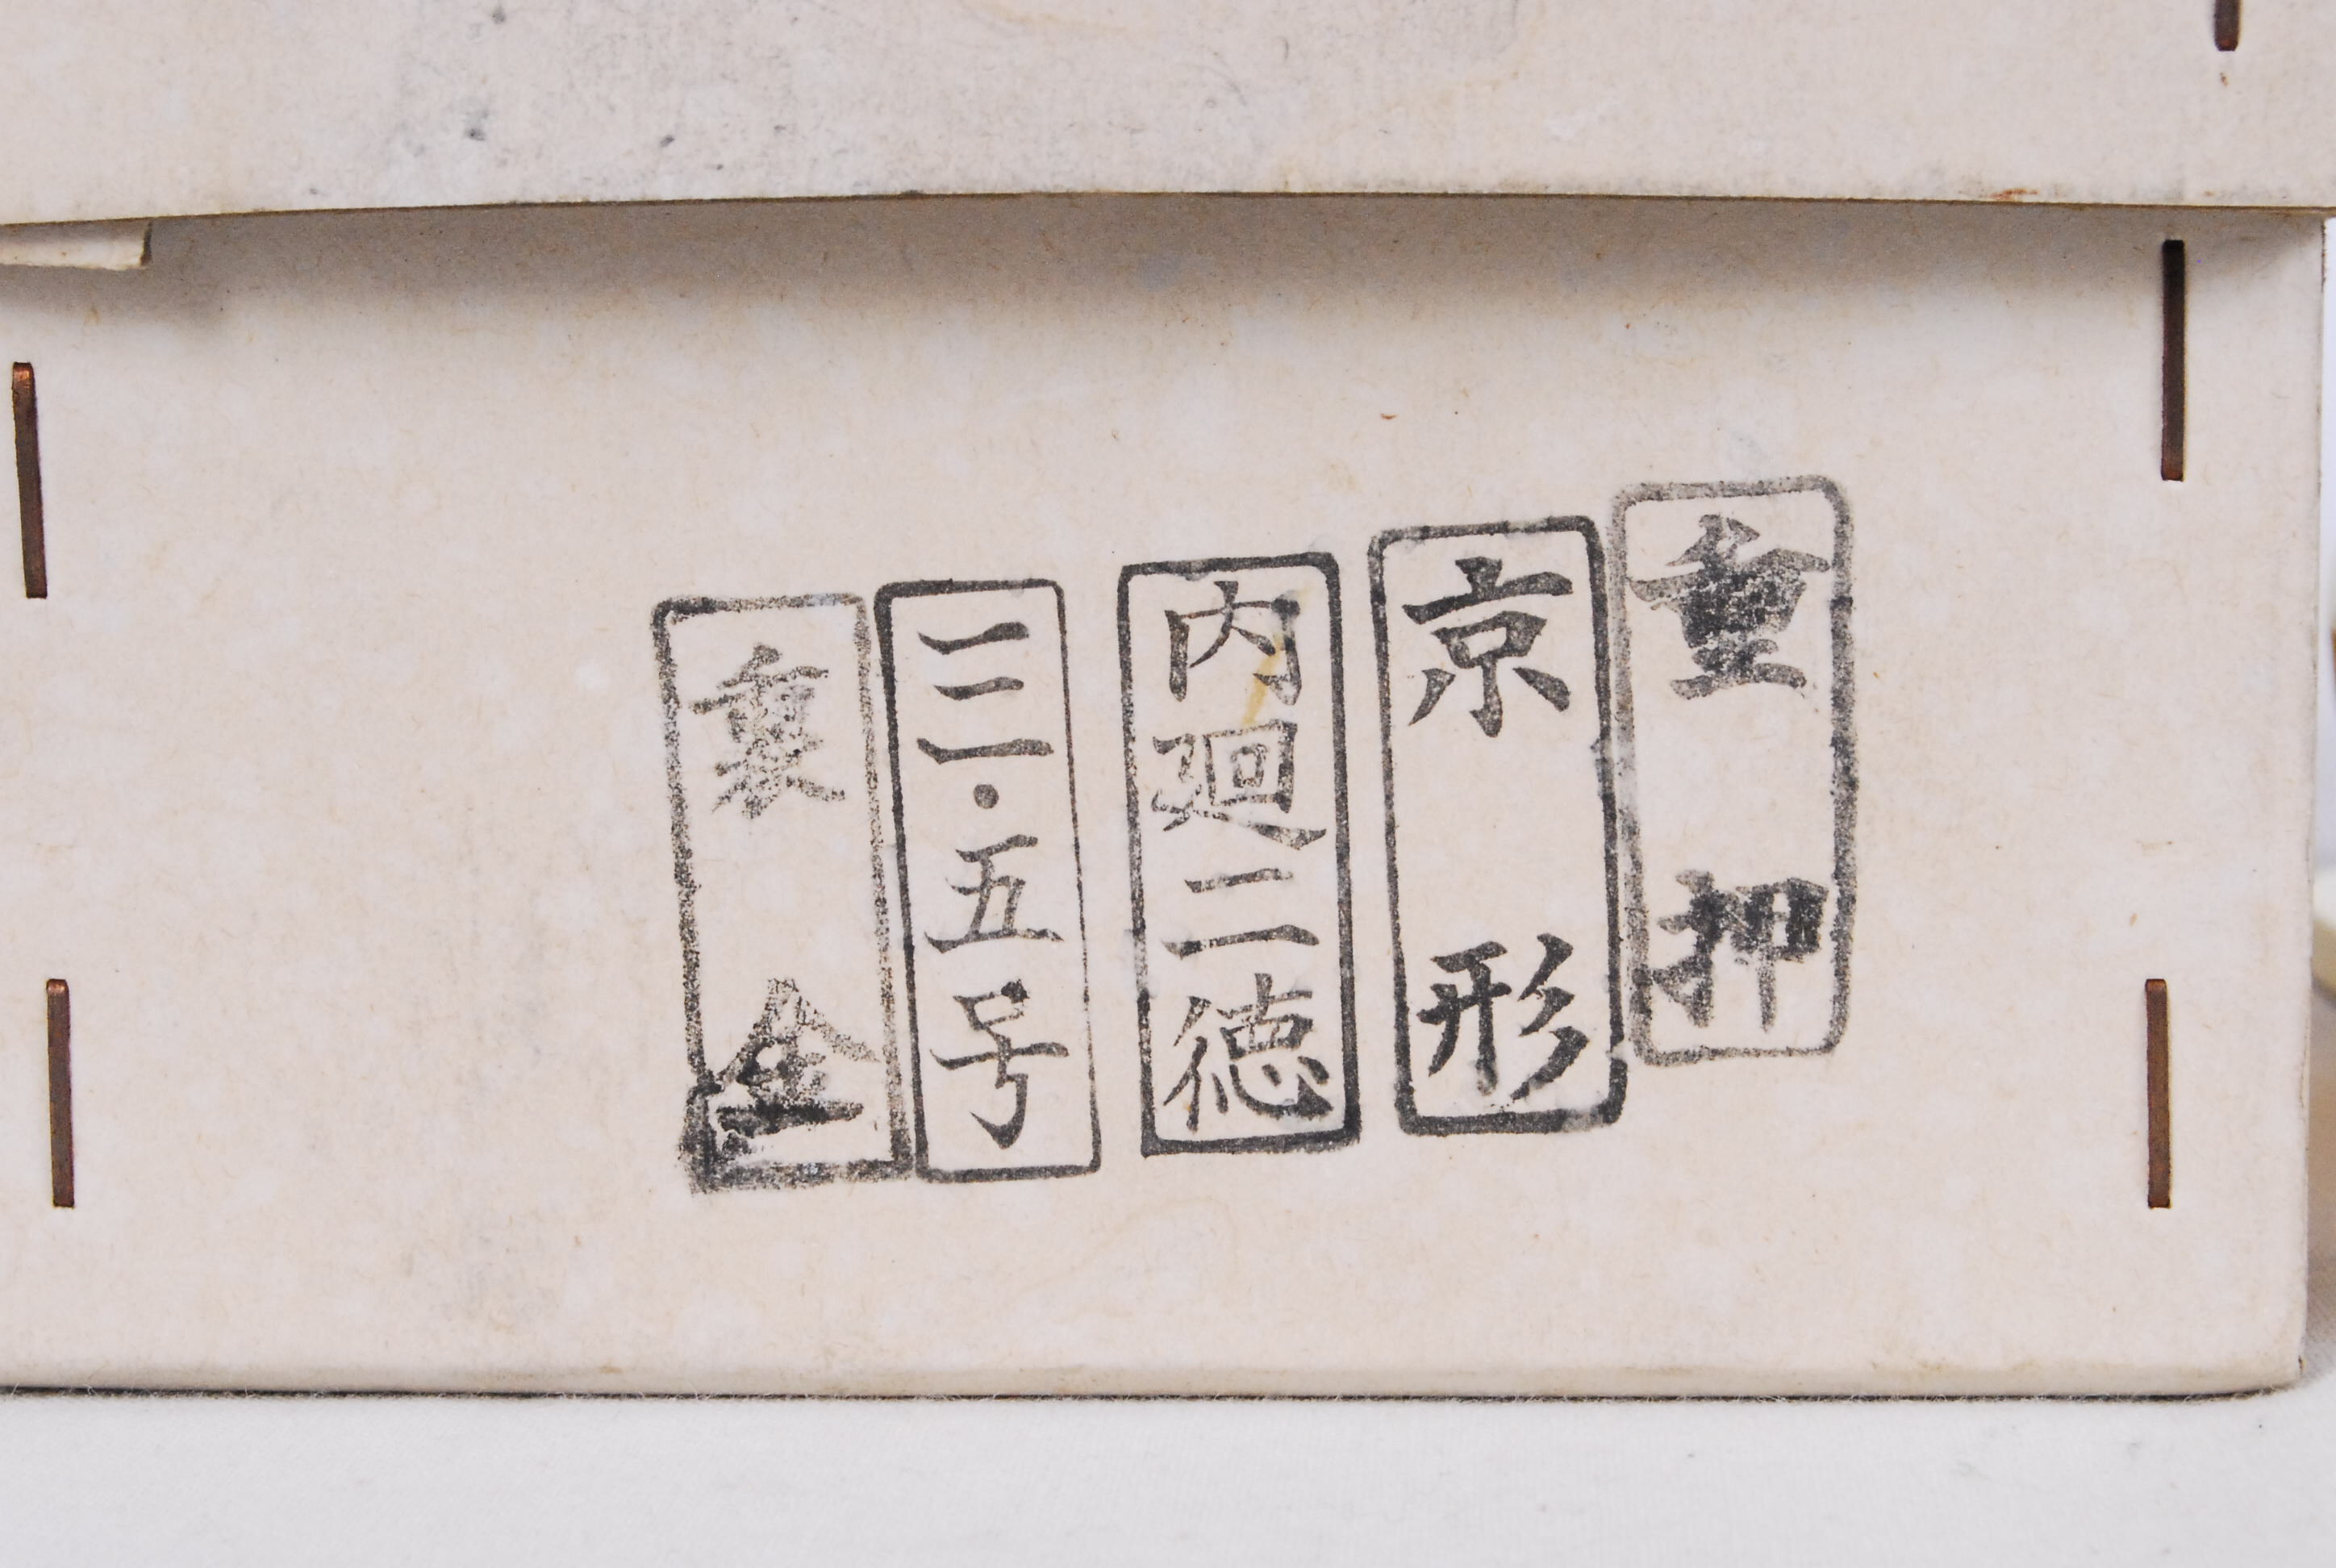 重押
京形
内廻二徳
三・五号
裏金